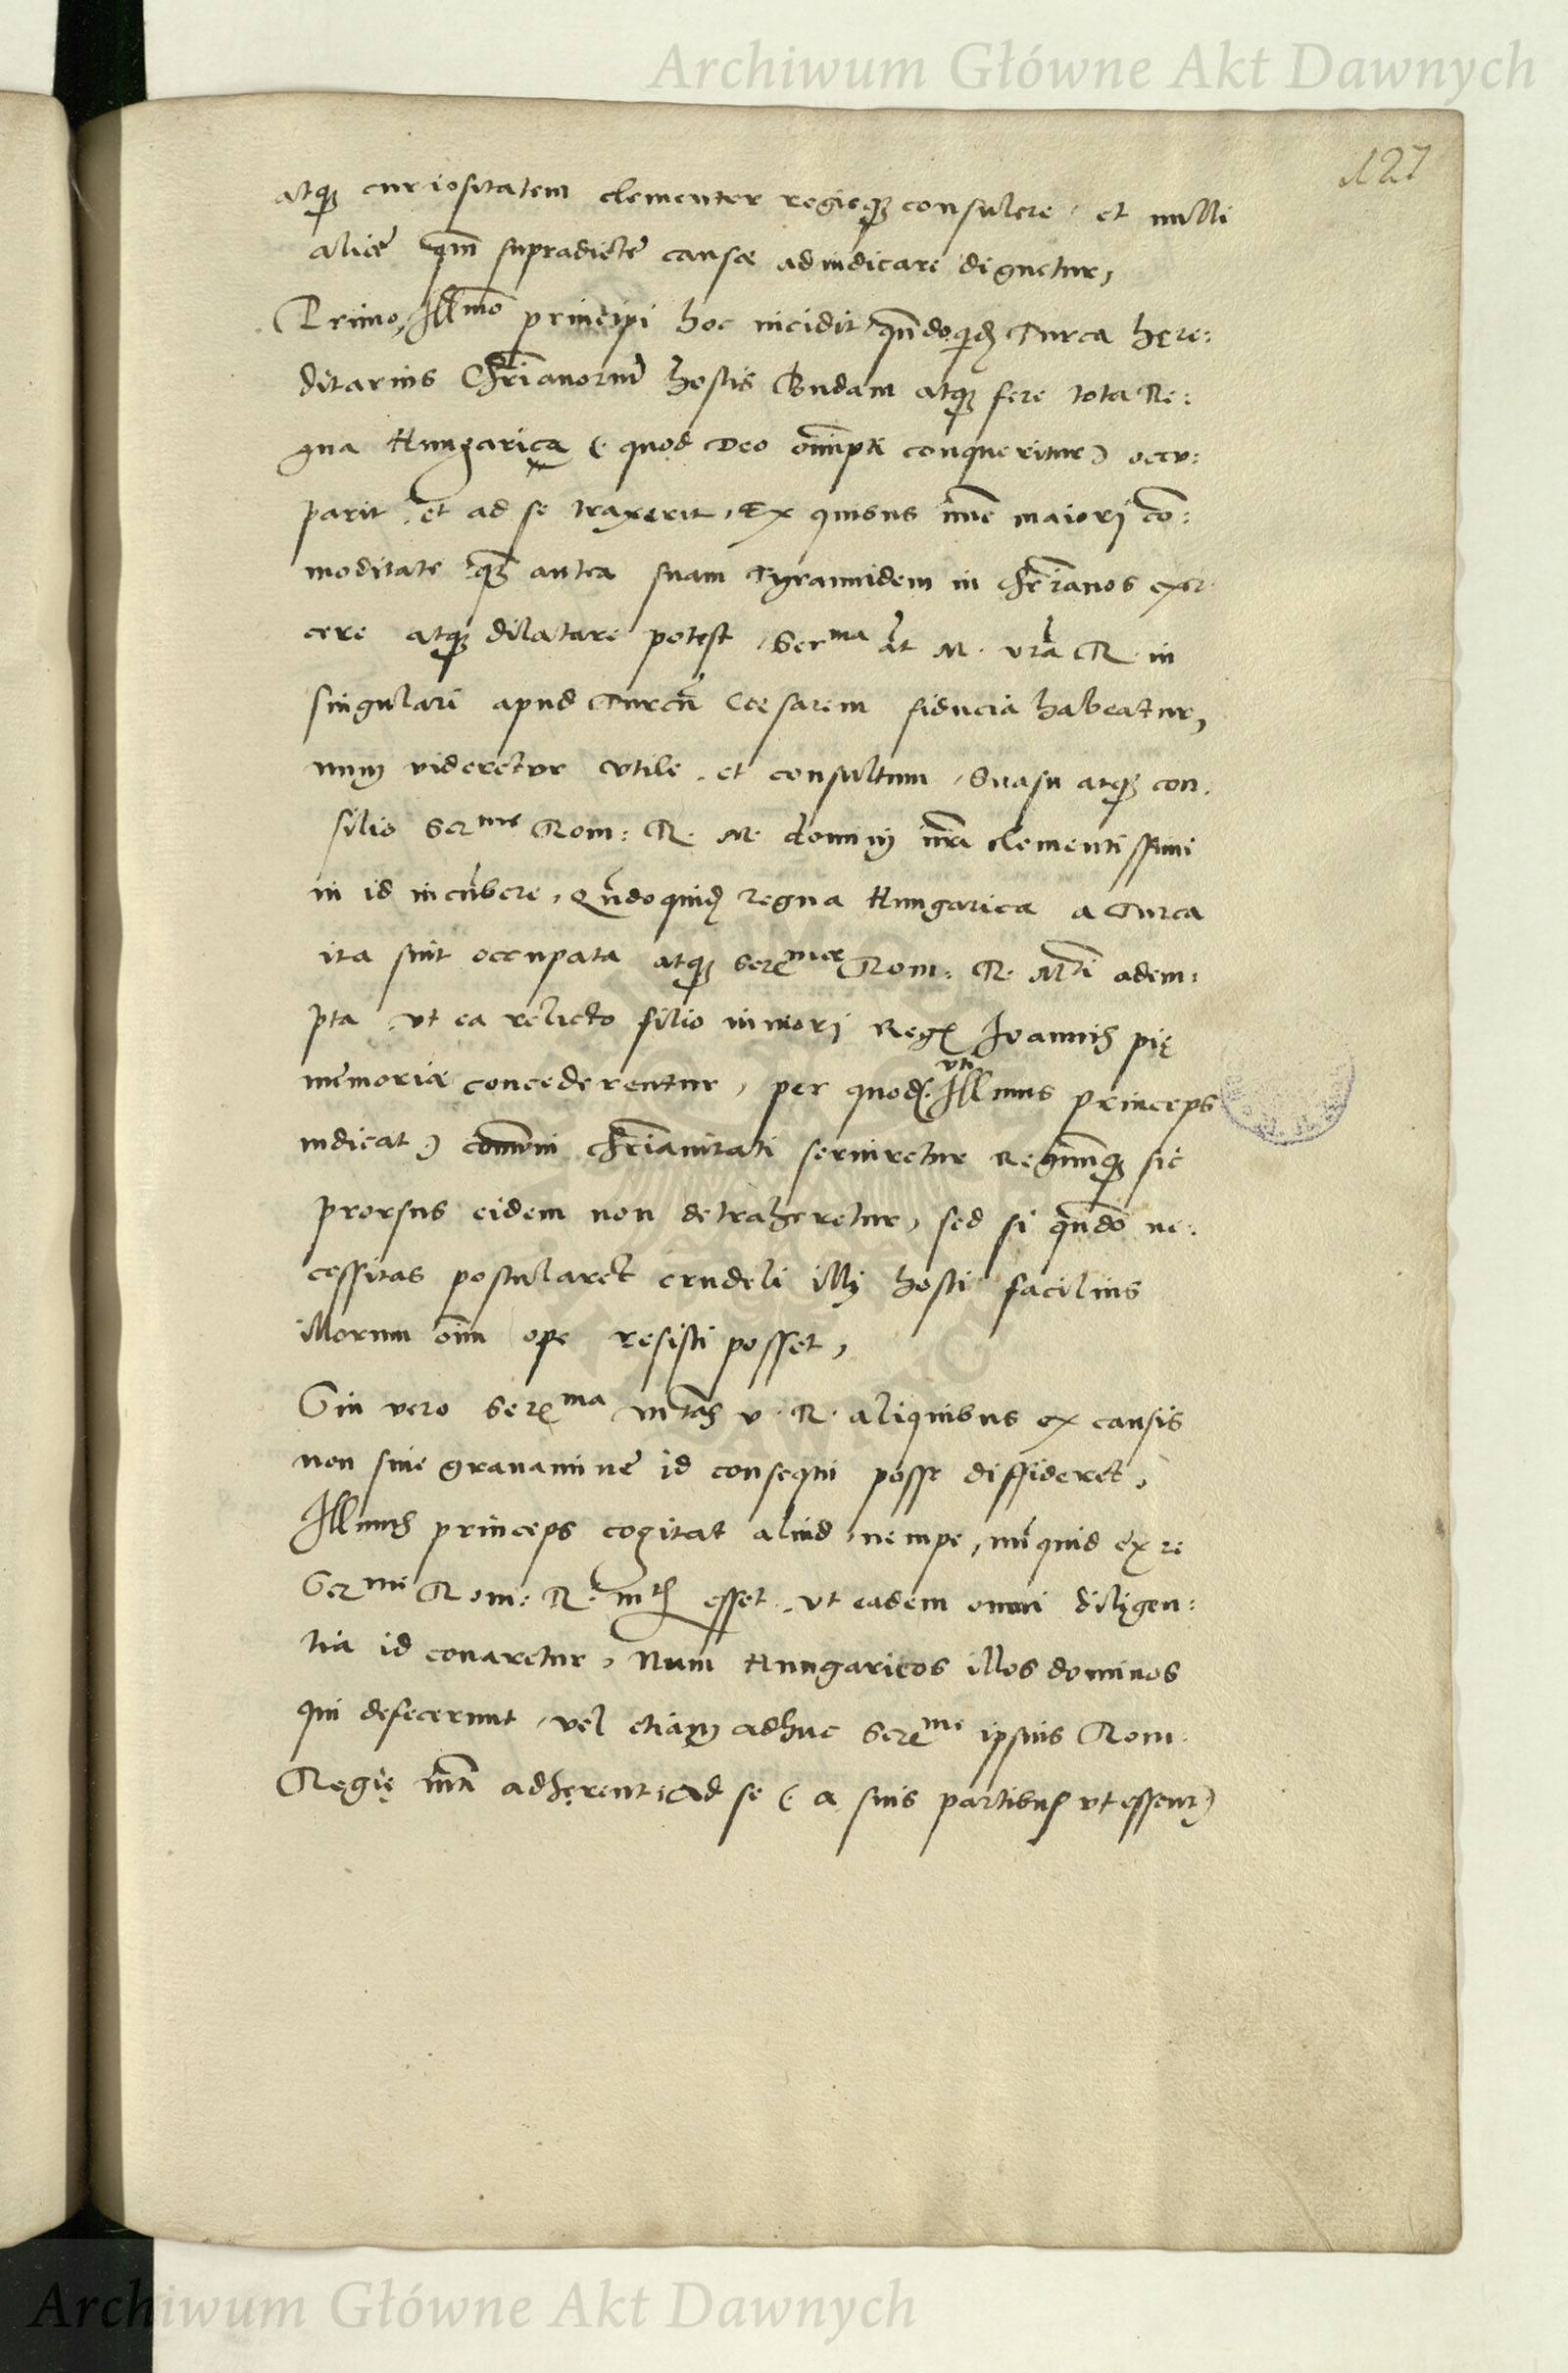 Archiwum Główne Akt Dawnych
127
atq₃ curiositatem clementer regieq₃ consulere, et nulli
aliae qm̄ supradictae causae adiudicare dignetur,
Primo, Illmo principi hoc incidit, qn̄doquid Turca here:
ditarius Chr̄ianorum hostis Budam atq₃ fere tota Re:
gna Hungarica (quod Deo omīpt conqueritur) occu:
parit, et ad se traxerit, Ex quibus nūc maiorj cō:
moditate q̄ antea suam Tyrannidem in Chr̄ianos exer
cere atq₃ dilatare potest, Serma at̄ M. vr̄a R. in
singulari apud Turcū Caesarem fiducia habeatur,
num videretur vtile, et consultum, Suasu atq₃ con:
silio Serme Rom: R. M. dominj nr̄i clementissimi
in id incūbere, Qn̄doquid regna Hungarica a Turca
ita sint occupata atq₃ Sereme Rom: R. Mti adem:
pta, vt ea relicto filio minori Regs Ioannis pię
memoriae concederentur, per quod (vti Illmus princeps
indicat) com̄uni Chr̄ianitati seruiretur Regnumq₃ sic
prorsus eidem non detraheretur, sed si qn̄do ne:
cessitas postularet crudeli illj hosti facilius
illorum oīm ope resisti posset,
Sin vero Serema Mtas v. R. aliquibus ex causis
non sine grauamine id consequi posse diffideret,
Illmus princeps cogitat aliud, nempe, nūquid ex re
Serme Rom: R. mtis esset, vt eadem omni diligen:
tia id conaretur, Num Hungaricos illos dominos
qui defecerunt, vel etiam adhuc Sereme ipsius Rom.
Regię mti adhęrent, ad se (a suis partibus vt essent)
Archiwum Główne Akt Dawnych